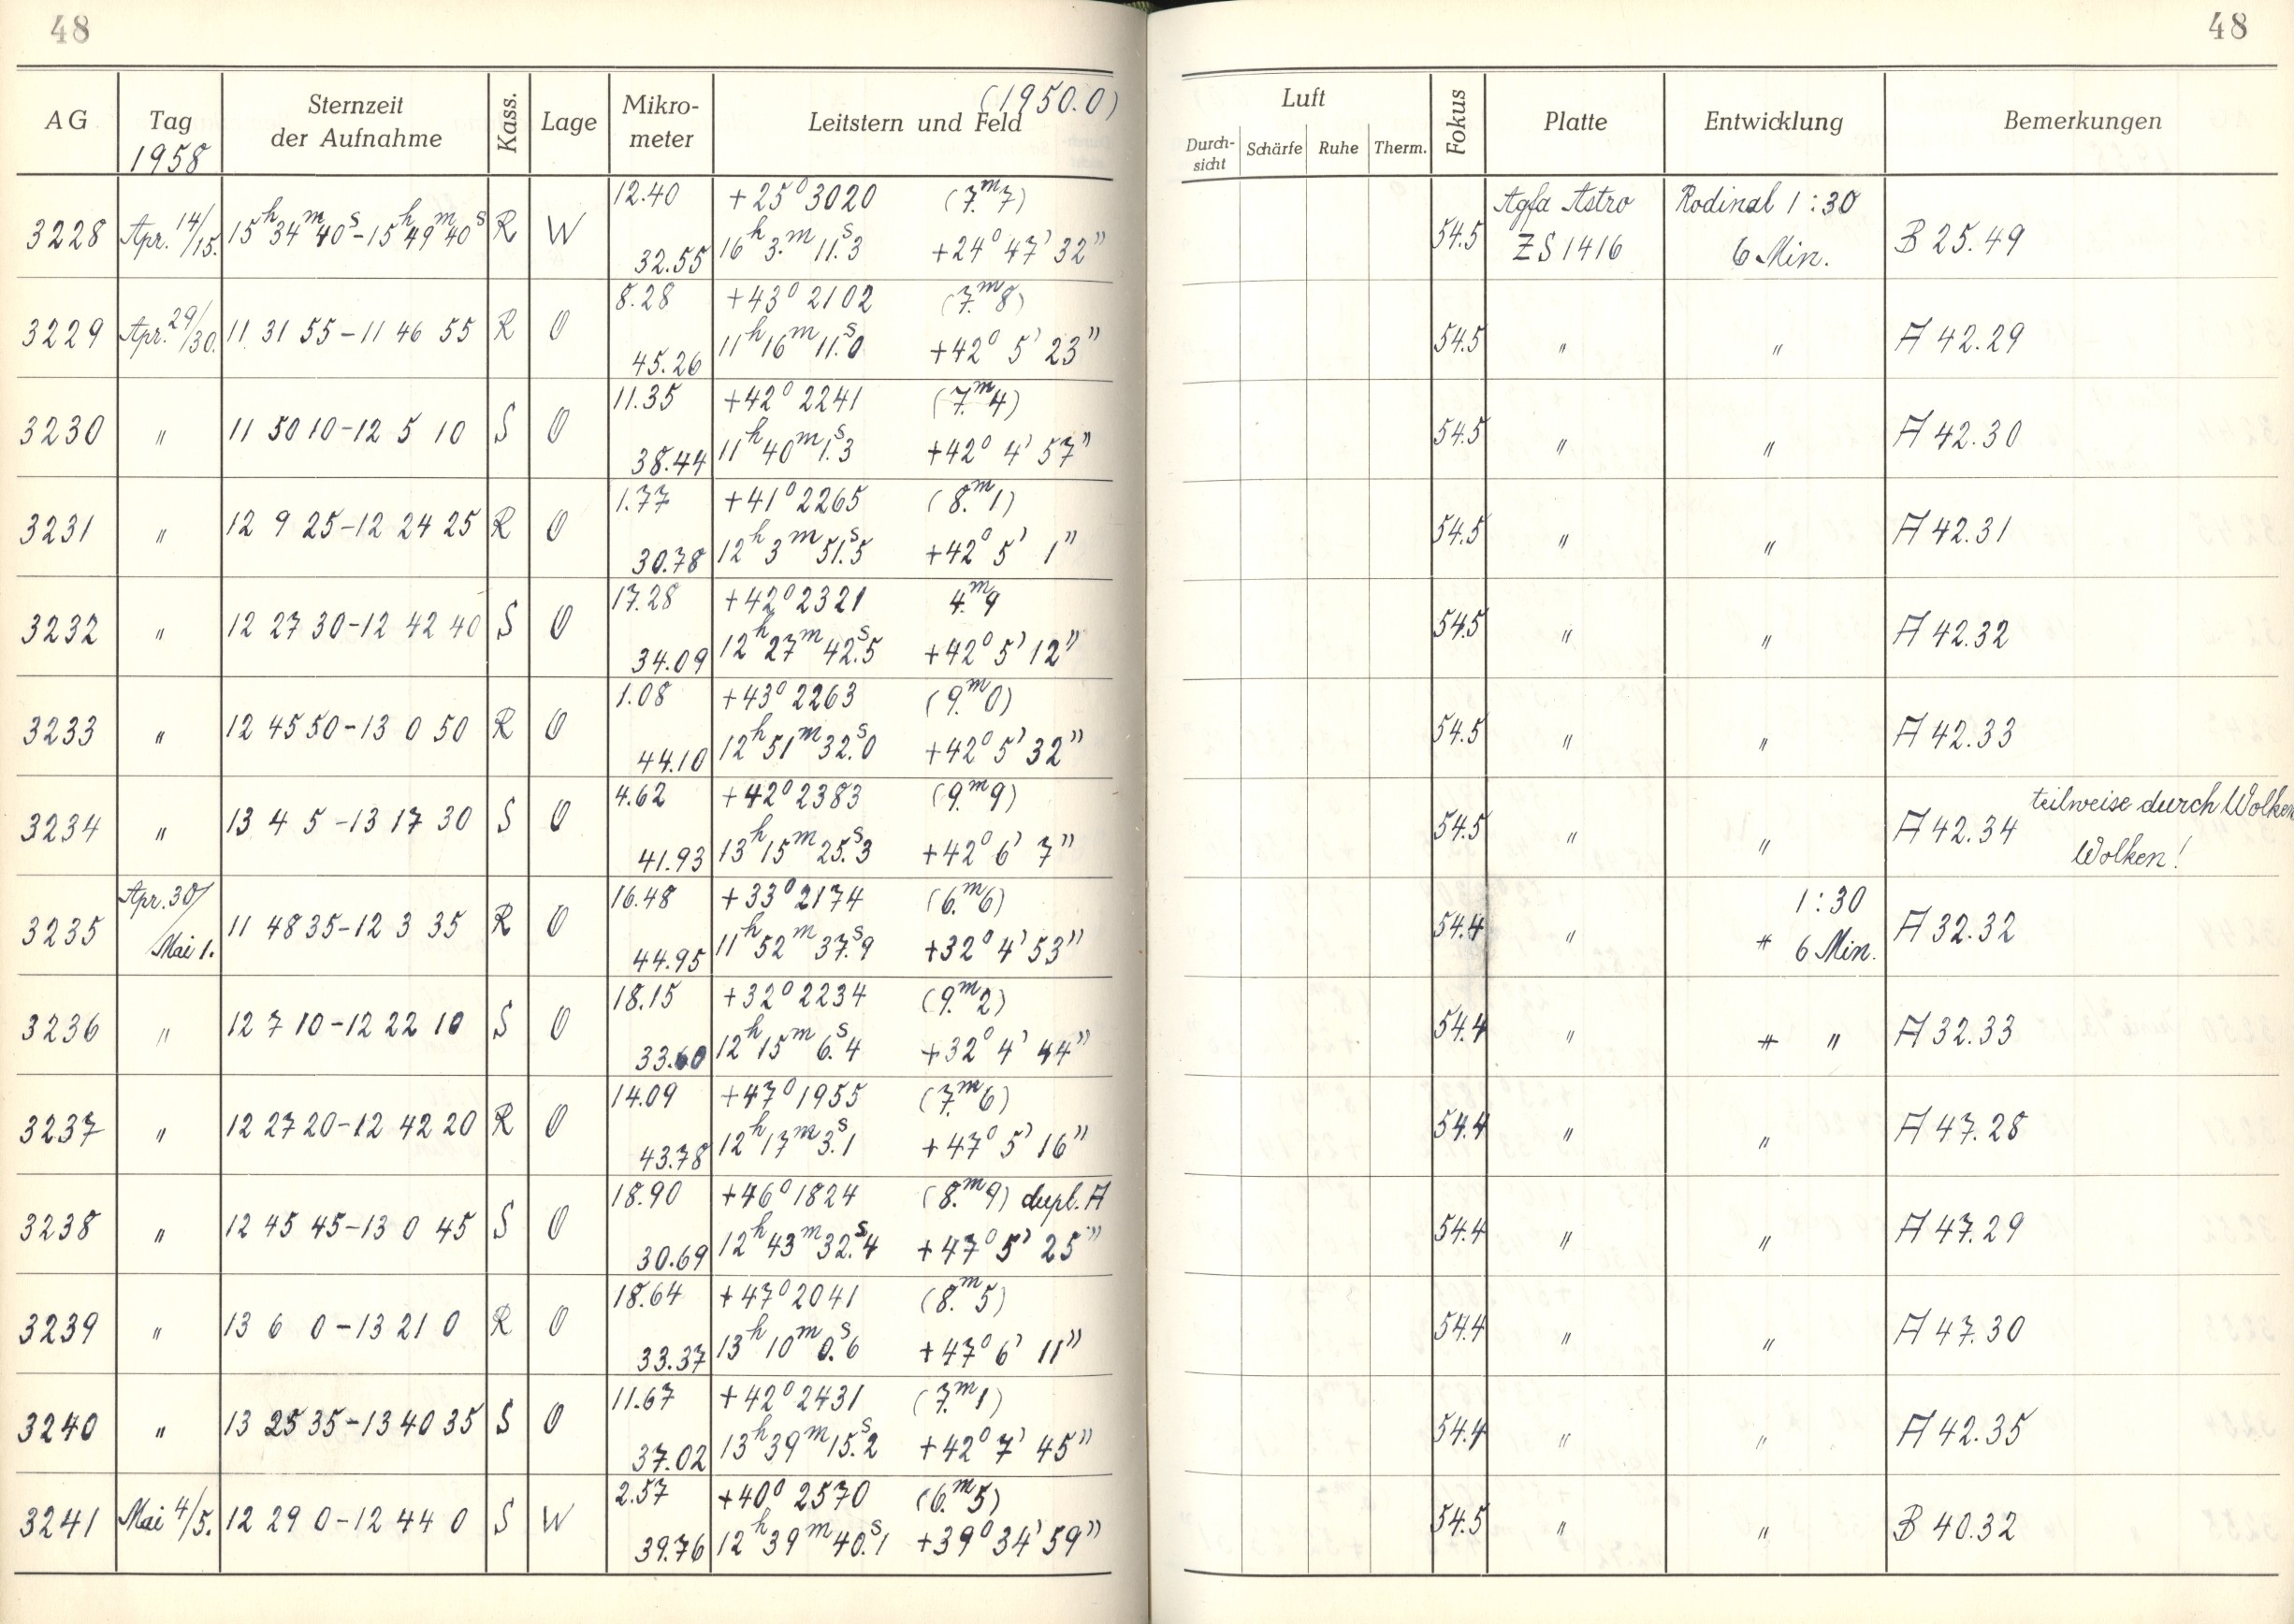 48
48
AG
Tag
1958
Sternzeit
der Aufnahme
Kass.
Lage
Mikro-
meter
(1950.0)
Leitstern und Feld
Luft
Durch-
sicht
Schärfe
Ruhe
Therm.
Fokus
Platte
Entwicklung
Bemerkungen
3228 Apr. 14/15. 15h 34m 40s - 15h 49m 40s R W
12.40 +25° 3020 (7.m7)
32.55 16h 3.m 11.s3 +24° 47' 32"
54.5 Agfa Astro Rodinal 1:30
ZS 1416 6 Min. B 25.49
3229 Apr. 29/30. 11 31 55 - 11 46 55 R O
8.28 +43° 2102 (7.m8)
45.26 11h 16m 11.s0 +42° 5' 23"
54.5 " " A 42.29
3230 " 11 50 10 - 12 5 10 S O
11.35 +42° 2241 (7.m4)
38.44 11h 40m 1.s3 +42° 4' 57"
54.5 " " A 42.30
3231 " 12 9 25 - 12 24 25 R O
1.77 +41° 2265 (8.m1)
30.78 12h 3m 51.s5 +42° 5' 1"
54.5 " " A 42.31
3232 " 12 27 30 - 12 42 40 S O
17.28 +42° 2321 4.m9
34.09 12h 27m 42.s5 +42° 5' 12"
54.5 " " A 42.32
3233 " 12 45 50 - 13 0 50 R O
1.08 +43° 2263 (9.m0)
44.10 12h 51m 32.s0 +42° 5' 32"
54.5 " " A 42.33
3234 " 13 4 5 - 13 17 30 S O
4.62 +42° 2383 (9.m9)
41.93 13h 15m 25.s3 +42° 6' 7"
54.5 " " A 42.34 teilweise durch Wolken
Wolken!
3235 Apr. 30/Mai 1. 11 48 35 - 12 3 35 R O
16.48 +33° 2174 (6.m6)
44.95 11h 52m 37.s9 +32° 4' 53"
54.4 " " 1:30
6 Min. A 32.32
3236 " 12 7 10 - 12 22 10 S O
18.15 +32° 2234 (9.m2)
33.60 12h 15m 6.s4 +32° 4' 44"
54.4 " " " A 32.33
3237 " 12 27 20 - 12 42 20 R O
14.09 +47° 1955 (7.m6)
43.78 12h 17m 3.s1 +47° 5' 16"
54.4 " " A 47.28
3238 " 12 45 45 - 13 0 45 S O
18.90 +46° 1824 (8.m9) dupl. A
30.69 12h 43m 32.s4 +47° 5' 25"
54.4 " " A 47.29
3239 " 13 6 0 - 13 21 0 R O
18.64 +47° 2041 (8.m5)
33.37 13h 10m 0.s6 +47° 6' 11"
54.4 " " A 47.30
3240 " 13 25 35 - 13 40 35 S O
11.67 +42° 2431 (7.m1)
37.02 13h 39m 15.s2 +42° 7' 45"
54.4 " " A 42.35
3241 Mai 4/5. 12 29 0 - 12 44 0 S W
2.57 +40° 2570 (6.m5)
39.76 12h 39m 40.s1 +39° 34' 59"
54.5 " " B 40.32